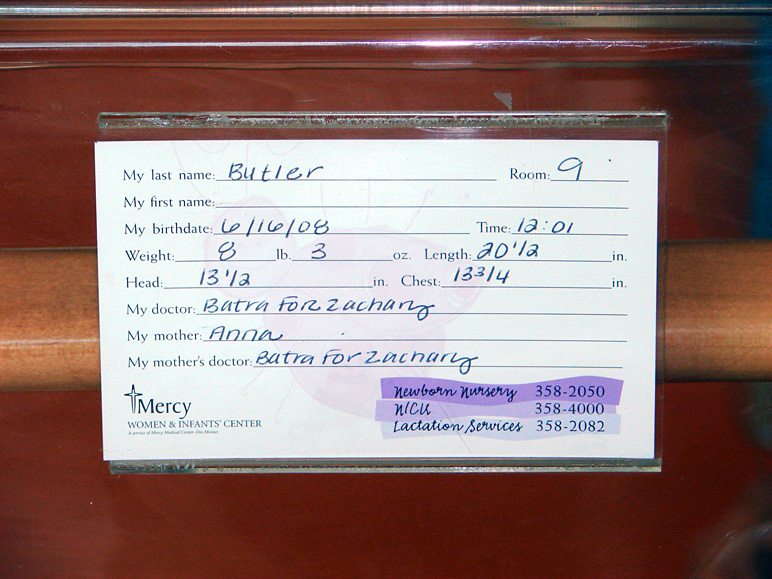 My last name: Butler Room: 9
My first name:
My birthdate: 6/16/08 Time: 12:01
Weight: 8 lb. 3 oz. Length: 20 1/2 in.
Head: 13 1/2 in. Chest: 13 3/4 in.
My doctor: Batra For Zachary
My mother: Anna
My mother's doctor: Batra For Zachary
Mercy
WOMEN & INFANTS' CENTER
A service of Mercy Medical Center–Des Moines
Newborn Nursery 358-2050
NICU 358-4000
Lactation Services 358-2082